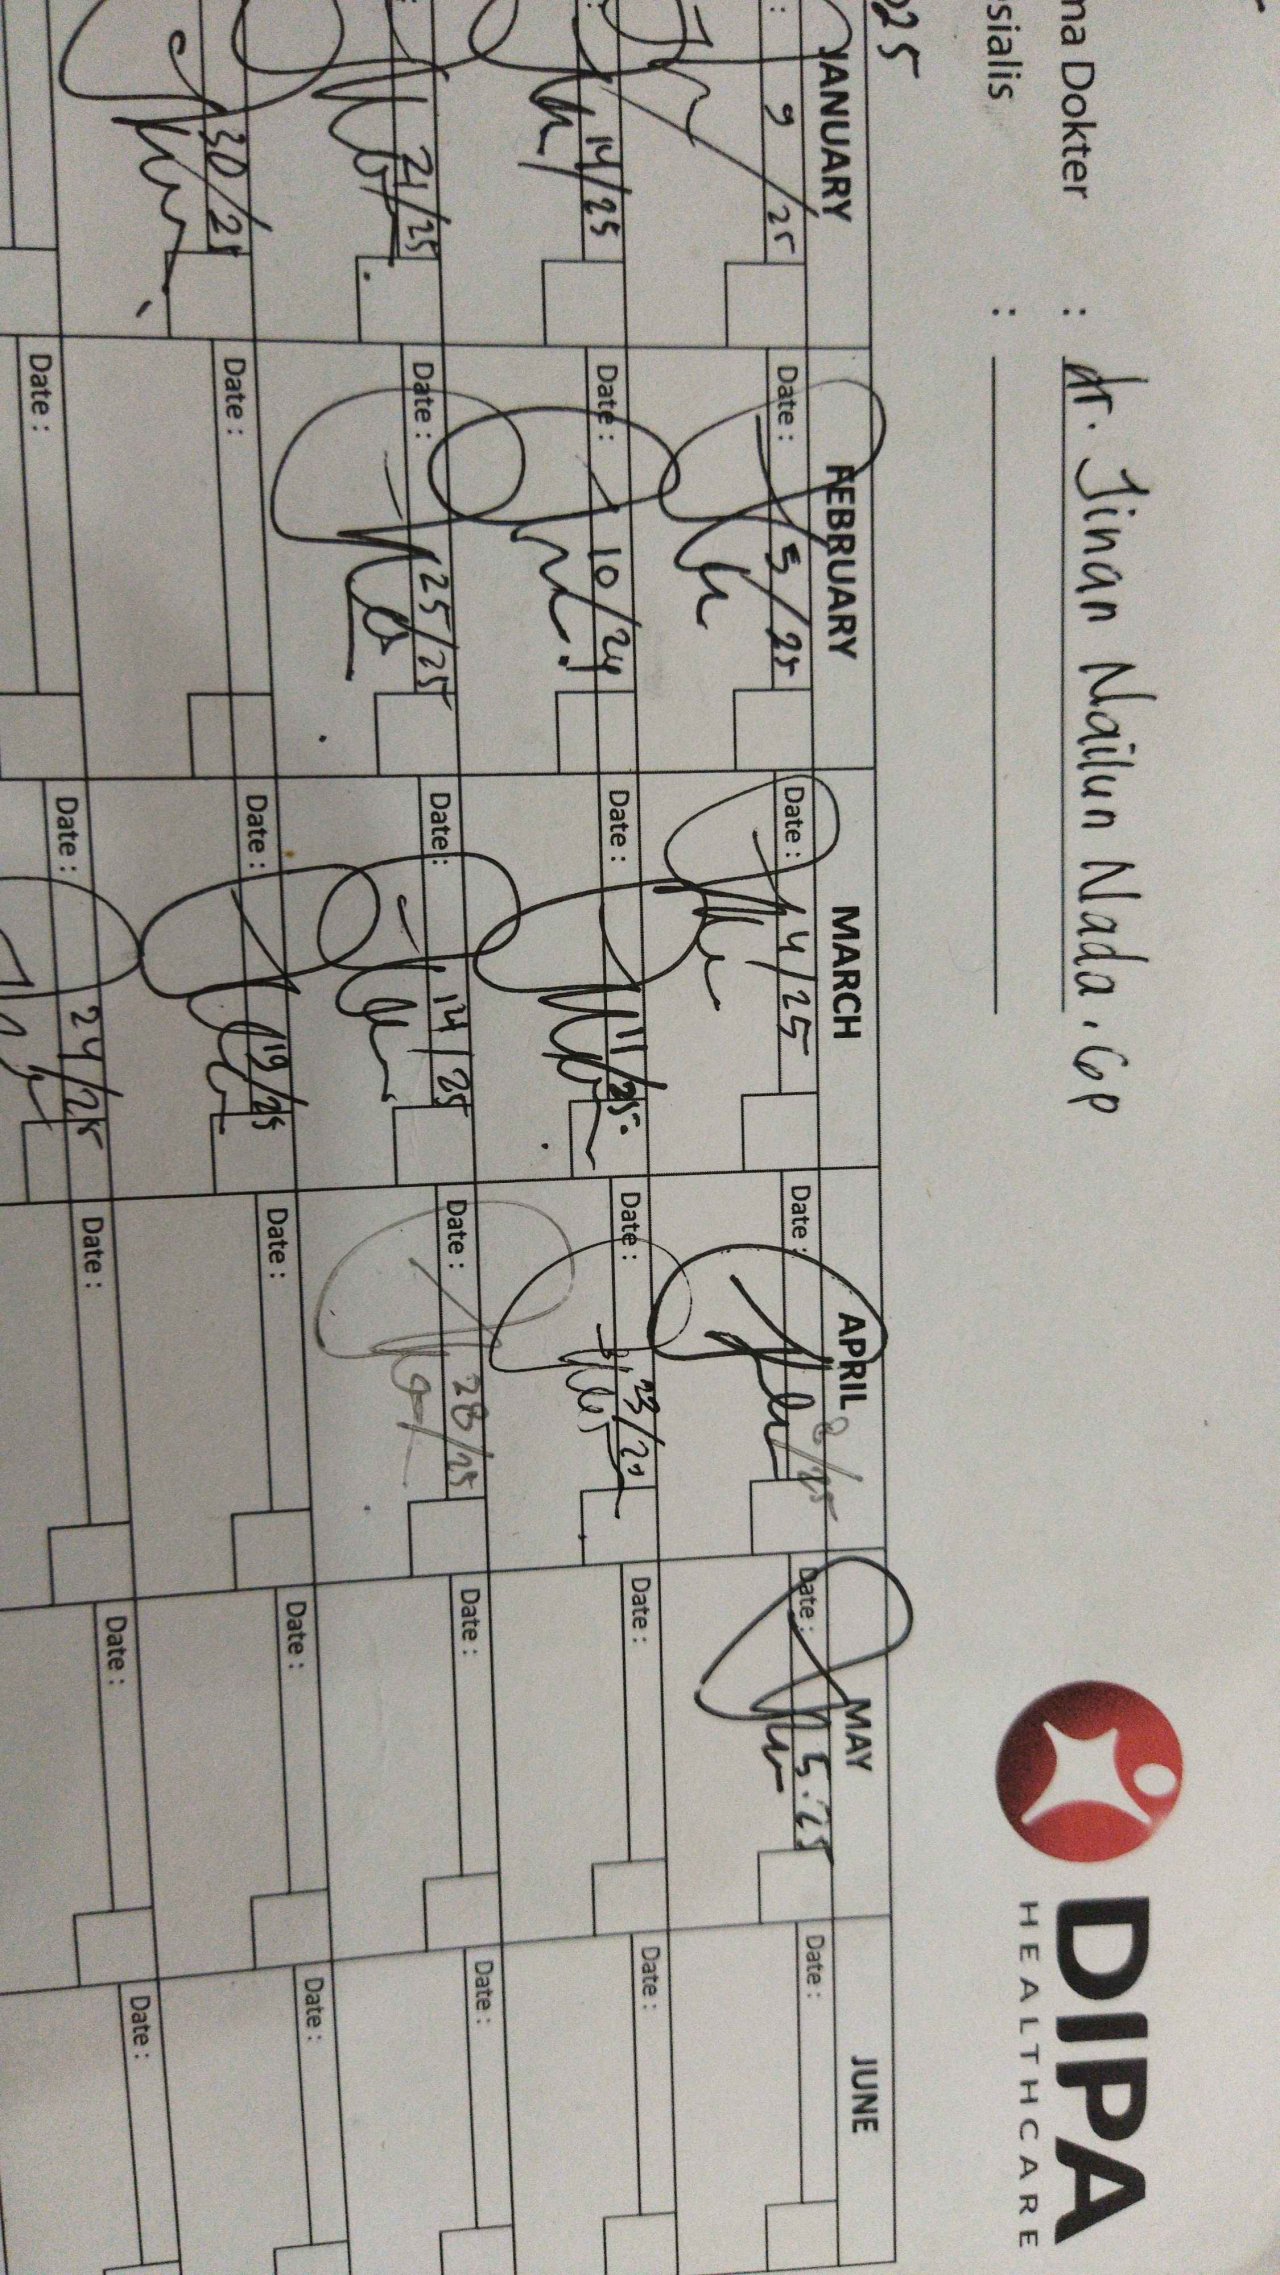 DIPA
HEALTHCARE
ma Dokter : dr. Jinan Nailun Nada. Gp
sialis :
025
JANUARY FEBRUARY MARCH APRIL MAY JUNE
: 9/25 Date : 5/25 Date : 4/25 Date : 8/25 Date : 5.25 Date :
: 14/25 Date : 10/24 Date : 11/25. Date : 23/25 Date : Date :
: 21/25 Date : 25/25 Date : 14/25 Date : 28/25 Date : Date :
30/25 Date : Date : 19/25 Date : Date : Date :
Date : Date : 24/25 Date : Date : Date :